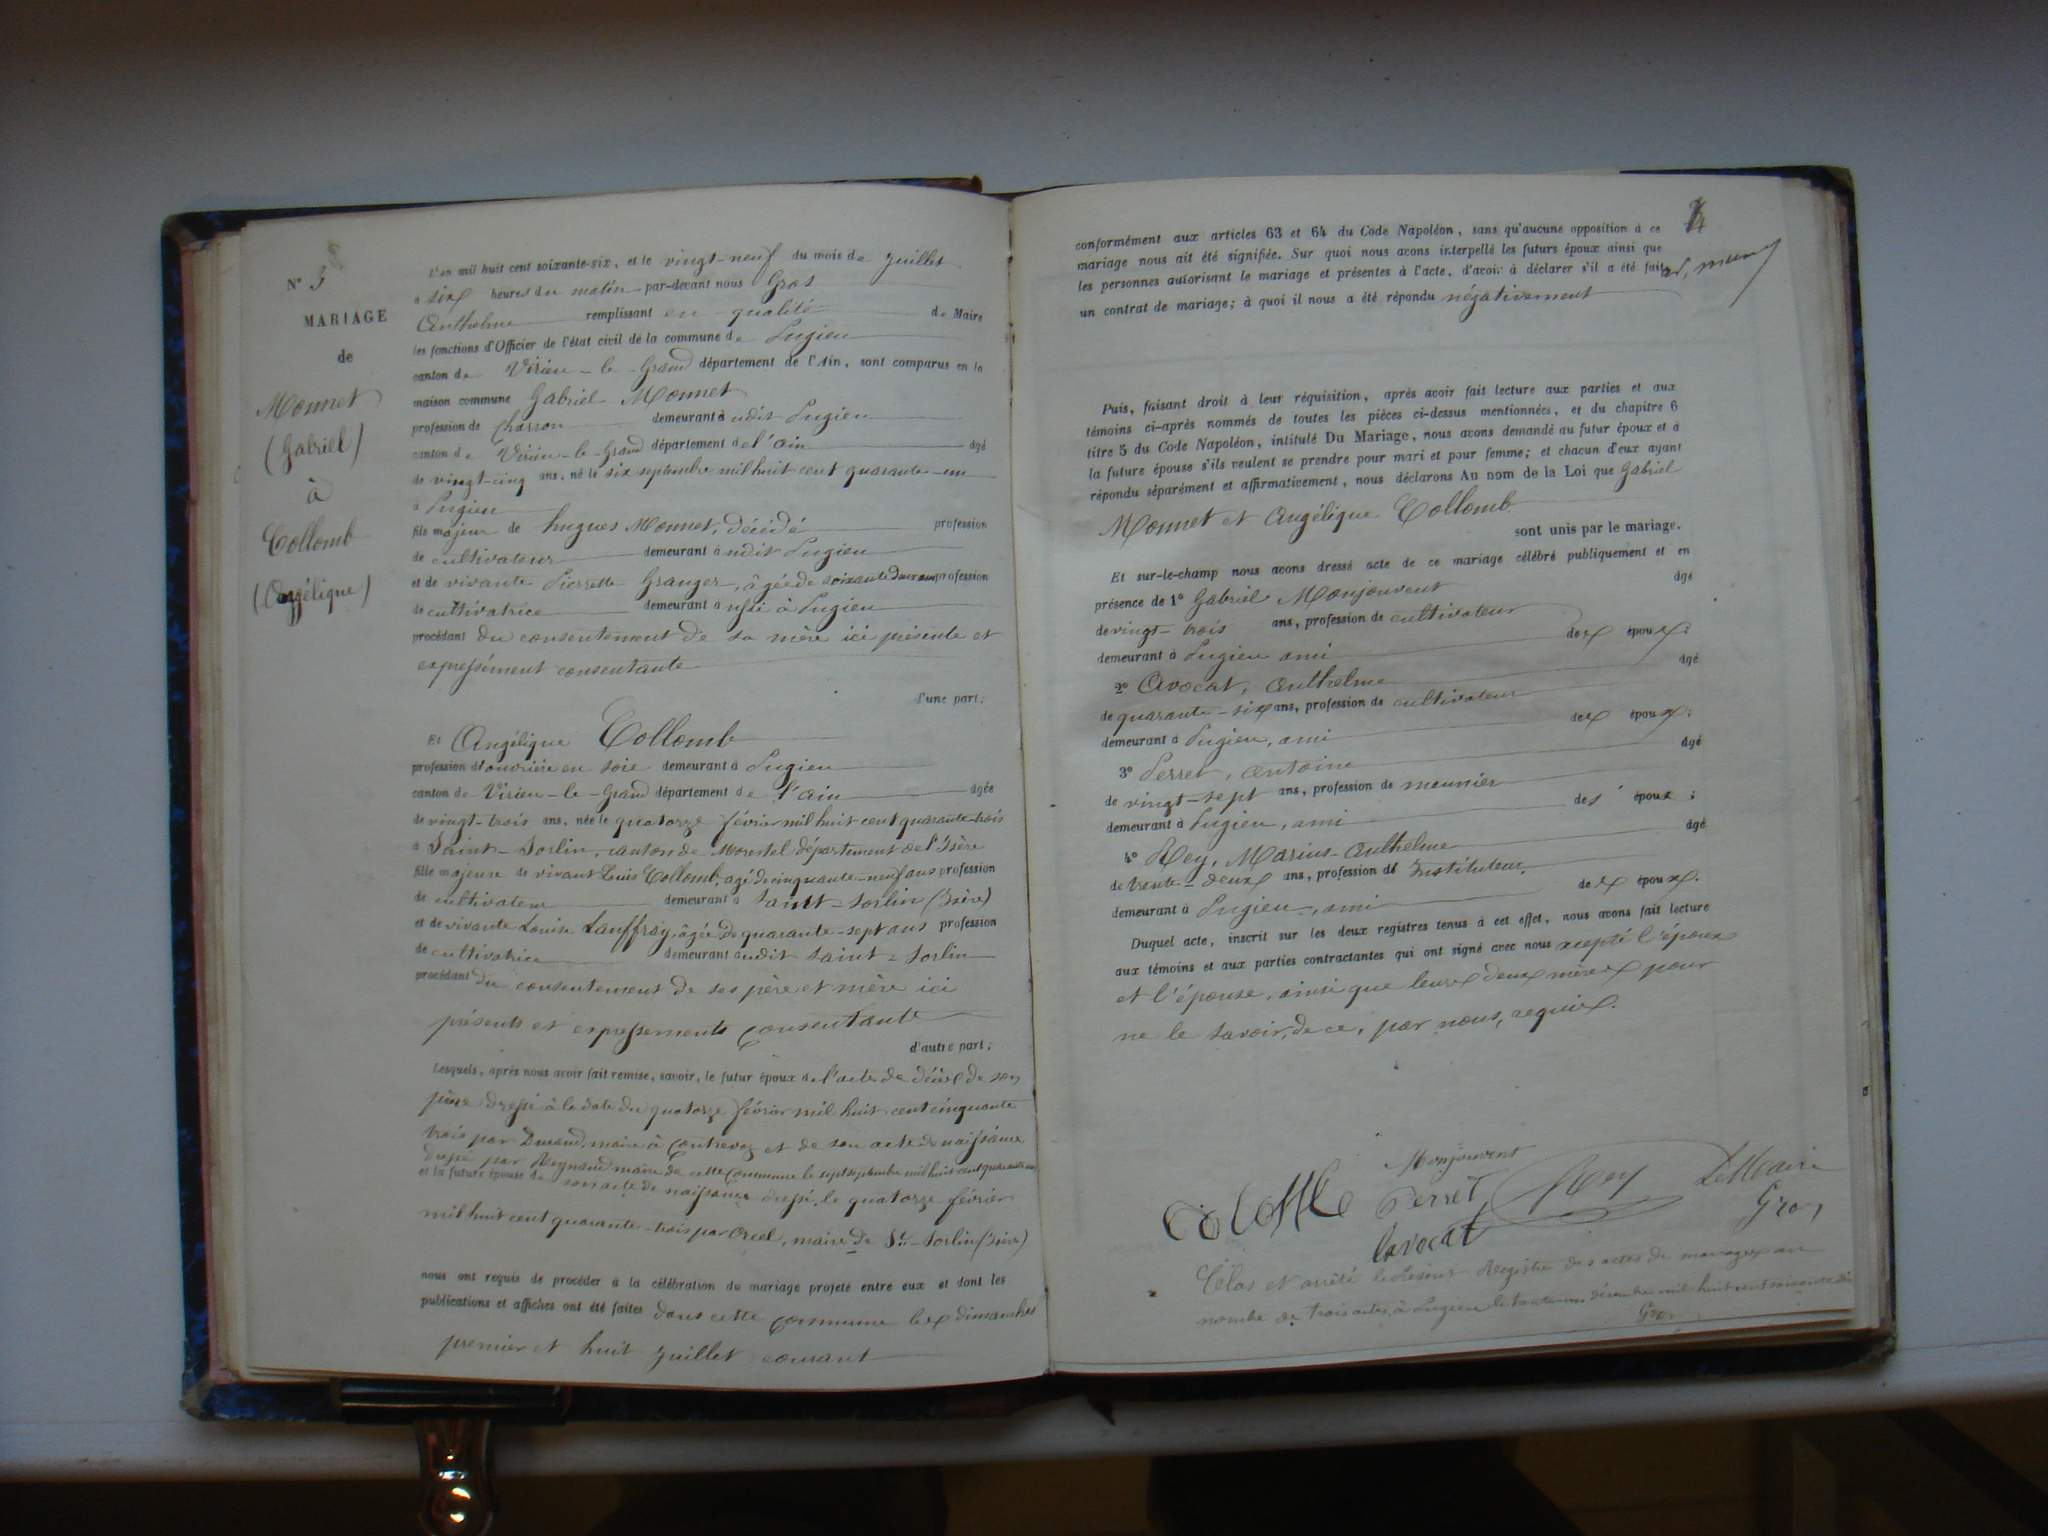 N° 3
MARIAGE
de
Monnet
(Gabriel)
à
Collomb
(Angélique)
L'an mil huit cent soixante-six, et le vingt-neuf du mois de juillet
à six heures du matin par-devant nous Gros
Anthelme remplissant en qualité de Maire
les fonctions d'Officier de l'état civil de la commune de Pugieu
canton de Virieu-le-Grand département de l'Ain, sont comparus en la
maison commune Gabriel Monnet
profession de charron demeurant à udit Pugieu
canton de Virieu-le-Grand département de l'ain âgé
de vingt-cinq ans, né le six septembre mil huit cent quarante-un
à Pugieu
fils majeur de hugues Monnet, décédé profession
de cultivateur demeurant à udit Pugieu
et de vivante Pierrette Granger, âgée de soixante deux ans profession
de cultivatrice demeurant à à Pugieu
procédant du consentement de sa mère ici présente et
expressément consentante
d'une part;
Et Angélique Collomb
profession d'ouvrière en soie demeurant à Pugieu
canton de Virieu-le-Grand département de l'ain âgée
de vingt-trois ans, née le quatorze février mil huit cent quarante-trois
à Saint-Sorlin, canton de Morestel département de l'Isère
fille majeure de vivant Louis Collomb, agé de cinquante-neuf ans profession
de cultivateur demeurant à Saint-Sorlin (Isère)
et de vivante Louise Lauffray, âgée de quarante-sept ans profession
de cultivatrice demeurant audit Saint-Sorlin
procédant du consentement de ses père et mère ici
présents et expressements consentants
d'autre part;
Lesquels, après nous avoir fait remise, savoir, le futur époux de l'acte de décès de son
père dressé à la date du quatorze février mil huit cent cinquante
trois par Durand, maire à Contrevoz et de son acte de naissance
dressé par Reynaud maire de cette commune le sept septembre mil huit cent quarante un
et la future épouse de son acte de naissance dressé le quatorze février
mil huit cent quarante-trois par Orcel, maire de St-Sorlin (Isère)
nous ont requis de procéder à la célébration du mariage projeté entre eux et dont les
publications et affiches ont été faites dans cette commune les dimanches
premier et huit juillet courant
conformément aux articles 63 et 64 du Code Napoléon, sans qu'aucune opposition à ce
mariage nous ait été signifiée. Sur quoi nous avons interpellé les futurs époux ainsi que
les personnes autorisant le mariage et présentes à l'acte, d'avoir à déclarer s'il a été fait
un contrat de mariage; à quoi il nous a été répondu négativement
Puis, faisant droit à leur réquisition, après avoir fait lecture aux parties et aux
témoins ci-après nommés de toutes les pièces ci-dessus mentionnées, et du chapitre 6
titre 5 du Code Napoléon, intitulé Du Mariage, nous avons demandé au futur époux et à
la future épouse s'ils veulent se prendre pour mari et pour femme; et chacun d'eux ayant
répondu séparément et affirmativement, nous déclarons Au nom de la Loi que Gabriel
Monnet et Angélique Collomb
sont unis par le mariage.
Et sur-le-champ nous avons dressé acte de ce mariage célébré publiquement et en
présence de 1° Gabriel Monjouvent âgé
de vingt-trois ans, profession de cultivateur
demeurant à Pugieu ami des époux;
2° Avocat, Anthelme âgé
de quarante-six ans, profession de cultivateur
demeurant à Pugieu, ami des époux;
3° Perret, Antoine âgé
de vingt-sept ans, profession de meunier
demeurant à Pugieu, ami des époux;
4° Rey, Marius-Anthelme âgé
de trente-deux ans, profession d' Instituteur
demeurant à Pugieu, ami des époux.
Duquel acte, inscrit sur les deux registres tenus à cet effet, nous avons fait lecture
aux témoins et aux parties contractantes qui ont signé avec nous excepté l'époux
et l'épouse, ainsi que leurs deux mères pour
ne le savoir, de ce, par nous, requis.
Monjouvent
Perret Rey Le Maire
Gros
avocat
Clos et arrêté le présent Registre des actes de mariages au
nombre de trois actes, à Pugieu le trente un décembre mil huit cent soixante six
Gros